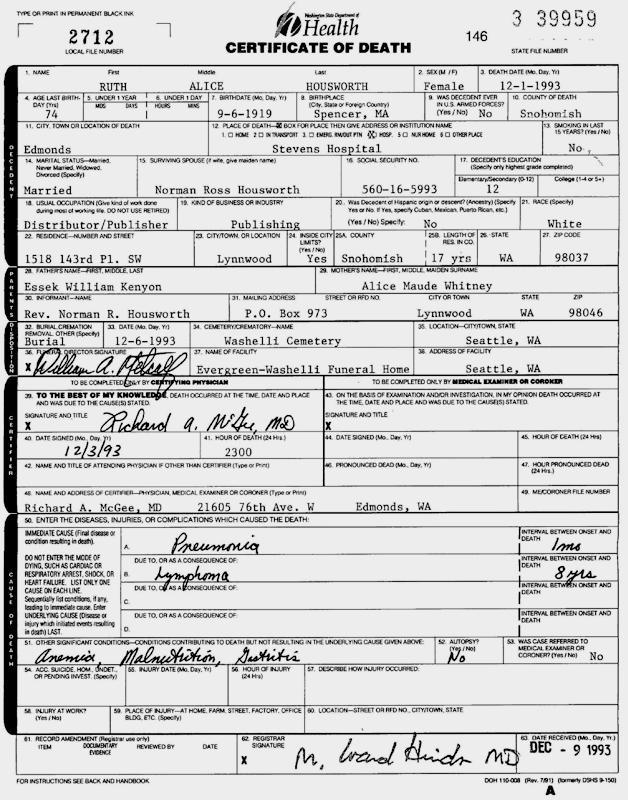 TYPE OR PRINT IN PERMANENT BLACK INK
Washington State Department of
Health
3 39959
2712
146
LOCAL FILE NUMBER
CERTIFICATE OF DEATH
STATE FILE NUMBER
1. NAME First Middle Last 2. SEX (M / F) 3. DEATH DATE (Mo, Day, Yr)
RUTH ALICE HOUSWORTH Female 12-1-1993
4. AGE LAST BIRTH-DAY (Yrs) 5. UNDER 1 YEAR MOS DAYS 6. UNDER 1 DAY HOURS MINS 7. BIRTHDATE (Mo, Day, Yr) 8. BIRTHPLACE (City, State or Foreign Country) 9. WAS DECEDENT EVER IN U.S. ARMED FORCES? (Yes / No) 10. COUNTY OF DEATH
74 9-6-1919 Spencer, MA No Snohomish
11. CITY, TOWN OR LOCATION OF DEATH 12. PLACE OF DEATH—☒ BOX FOR PLACE THEN GIVE ADDRESS OR INSTITUTION NAME 13. SMOKING IN LAST 15 YEARS? (Yes / No)
1. ☐ HOME 2. ☐ IN TRANSPORT 3. ☐ EMERG. RM/OUT PTN 4. ☒ HOSP. 5. ☐ NUR HOME 6. ☐ OTHER PLACE
Edmonds Stevens Hospital No
14. MARITAL STATUS—Married, Never Married, Widowed, Divorced (Specify) 15. SURVIVING SPOUSE (if wife, give maiden name) 16. SOCIAL SECURITY NO. 17. DECEDENT'S EDUCATION (Specify only highest grade completed)
Elementary/Secondary (0-12) College (1-4 or 5+)
Married Norman Ross Housworth 560-16-5993 12
18. USUAL OCCUPATION (Give kind of work done during most of working life. DO NOT USE RETIRED) 19. KIND OF BUSINESS OR INDUSTRY 20. Was Decedent of Hispanic origin or descent? (Ancestry) (Specify Yes or No. If Yes, specify Cuban, Mexican, Puerto Rican, etc.) 21. RACE (Specify)
Distributor/Publisher Publishing (Yes / No) Specify: No White
22. RESIDENCE—NUMBER AND STREET 23. CITY/TOWN, OR LOCATION 24. INSIDE CITY LIMITS? (Yes / No) 25A. COUNTY 25B. LENGTH OF RES. IN CO. 26. STATE 27. ZIP CODE
1518 143rd Pl. SW Lynnwood Yes Snohomish 17 yrs WA 98037
28. FATHER'S NAME—FIRST, MIDDLE, LAST 29. MOTHER'S NAME—FIRST, MIDDLE, MAIDEN SURNAME
Essek William Kenyon Alice Maude Whitney
30. INFORMANT—NAME 31. MAILING ADDRESS STREET OR RFD NO. CITY OR TOWN STATE ZIP
Rev. Norman R. Housworth P.O. Box 973 Lynnwood WA 98046
32. BURIAL,CREMATION REMOVAL, OTHER (Specify) 33. DATE (Mo, Day, Yr) 34. CEMETERY/CREMATORY—NAME 35. LOCATION—CITY/TOWN, STATE
Burial 12-6-1993 Washelli Cemetery Seattle, WA
36. FUNERAL DIRECTOR SIGNATURE 37. NAME OF FACILITY 38. ADDRESS OF FACILITY
X William A. Metcalf Evergreen-Washelli Funeral Home Seattle, WA
TO BE COMPLETED ONLY BY CERTIFYING PHYSICIAN TO BE COMPLETED ONLY BY MEDICAL EXAMINER OR CORONER
39. TO THE BEST OF MY KNOWLEDGE, DEATH OCCURRED AT THE TIME, DATE AND PLACE AND WAS DUE TO THE CAUSE(S) STATED. 43. ON THE BASIS OF EXAMINATION AND/OR INVESTIGATION, IN MY OPINION DEATH OCCURRED AT THE TIME, DATE AND PLACE AND WAS DUE TO THE CAUSE(S) STATED.
SIGNATURE AND TITLE SIGNATURE AND TITLE
X Richard A. McGee, MD X
40. DATE SIGNED (Mo., Day, Yr) 41. HOUR OF DEATH (24 Hrs.) 44. DATE SIGNED (Mo., Day, Yr) 45. HOUR OF DEATH (24 Hrs)
12/3/93 2300
42. NAME AND TITLE OF ATTENDING PHYSICIAN IF OTHER THAN CERTIFIER (Type or Print) 46. PRONOUNCED DEAD (Mo., Day, Yr) 47. HOUR PRONOUNCED DEAD (24 Hrs.)
48. NAME AND ADDRESS OF CERTIFIER—PHYSICIAN, MEDICAL EXAMINER OR CORONER (Type or Print) 49. ME/CORONER FILE NUMBER
Richard A. McGee, MD 21605 76th Ave. W Edmonds, WA
50. ENTER THE DISEASES, INJURIES, OR COMPLICATIONS WHICH CAUSED THE DEATH:
IMMEDIATE CAUSE (Final disease or condition resulting in death). A. Pneumonia INTERVAL BETWEEN ONSET AND DEATH 1mo
DO NOT ENTER THE MODE OF DYING, SUCH AS CARDIAC OR RESPIRATORY ARREST, SHOCK, OR HEART FAILURE. LIST ONLY ONE CAUSE ON EACH LINE.
DUE TO, OR AS A CONSEQUENCE OF: B. Lymphoma INTERVAL BETWEEN ONSET AND DEATH 8 yrs
Sequentially list conditions, if any, leading to immediate cause. Enter UNDERLYING CAUSE (Disease or injury which initiated events resulting in death) LAST.
DUE TO, OR AS A CONSEQUENCE OF: C. INTERVAL BETWEEN ONSET AND DEATH
DUE TO, OR AS A CONSEQUENCE OF: D. INTERVAL BETWEEN ONSET AND DEATH
51. OTHER SIGNIFICANT CONDITIONS—CONDITIONS CONTRIBUTING TO DEATH BUT NOT RESULTING IN THE UNDERLYING CAUSE GIVEN ABOVE: 52. AUTOPSY? (Yes / No) 53. WAS CASE REFERRED TO MEDICAL EXAMINER OR CORONER? (Yes / No)
Anemia, Malnutrition, Gastritis No No
54. ACC. SUICIDE, HOM., UNDET., OR PENDING INVEST. (Specify) 55. INJURY DATE (Mo, Day, Yr) 56. HOUR OF INJURY (24 Hrs) 57. DESCRIBE HOW INJURY OCCURRED:
58. INJURY AT WORK? (Yes / No) 59. PLACE OF INJURY—AT HOME, FARM, STREET, FACTORY, OFFICE BLDG, ETC. (Specify) 60. LOCATION—STREET OR RFD NO., CITY/TOWN, STATE
61. RECORD AMENDMENT (Registrar use only) 62. REGISTRAR SIGNATURE 63. DATE RECEIVED (Mo., Day, Yr.)
ITEM DOCUMENTARY EVIDENCE REVIEWED BY DATE X M. Ward Hinds MD DEC - 9 1993
FOR INSTRUCTIONS SEE BACK AND HANDBOOK. DOH 110-008 (Rev. 7/91) (formerly DSHS 9-150)
A
DECEDENT
PARENTS
DISPOSITION
CERTIFIER
CAUSE OF DEATH